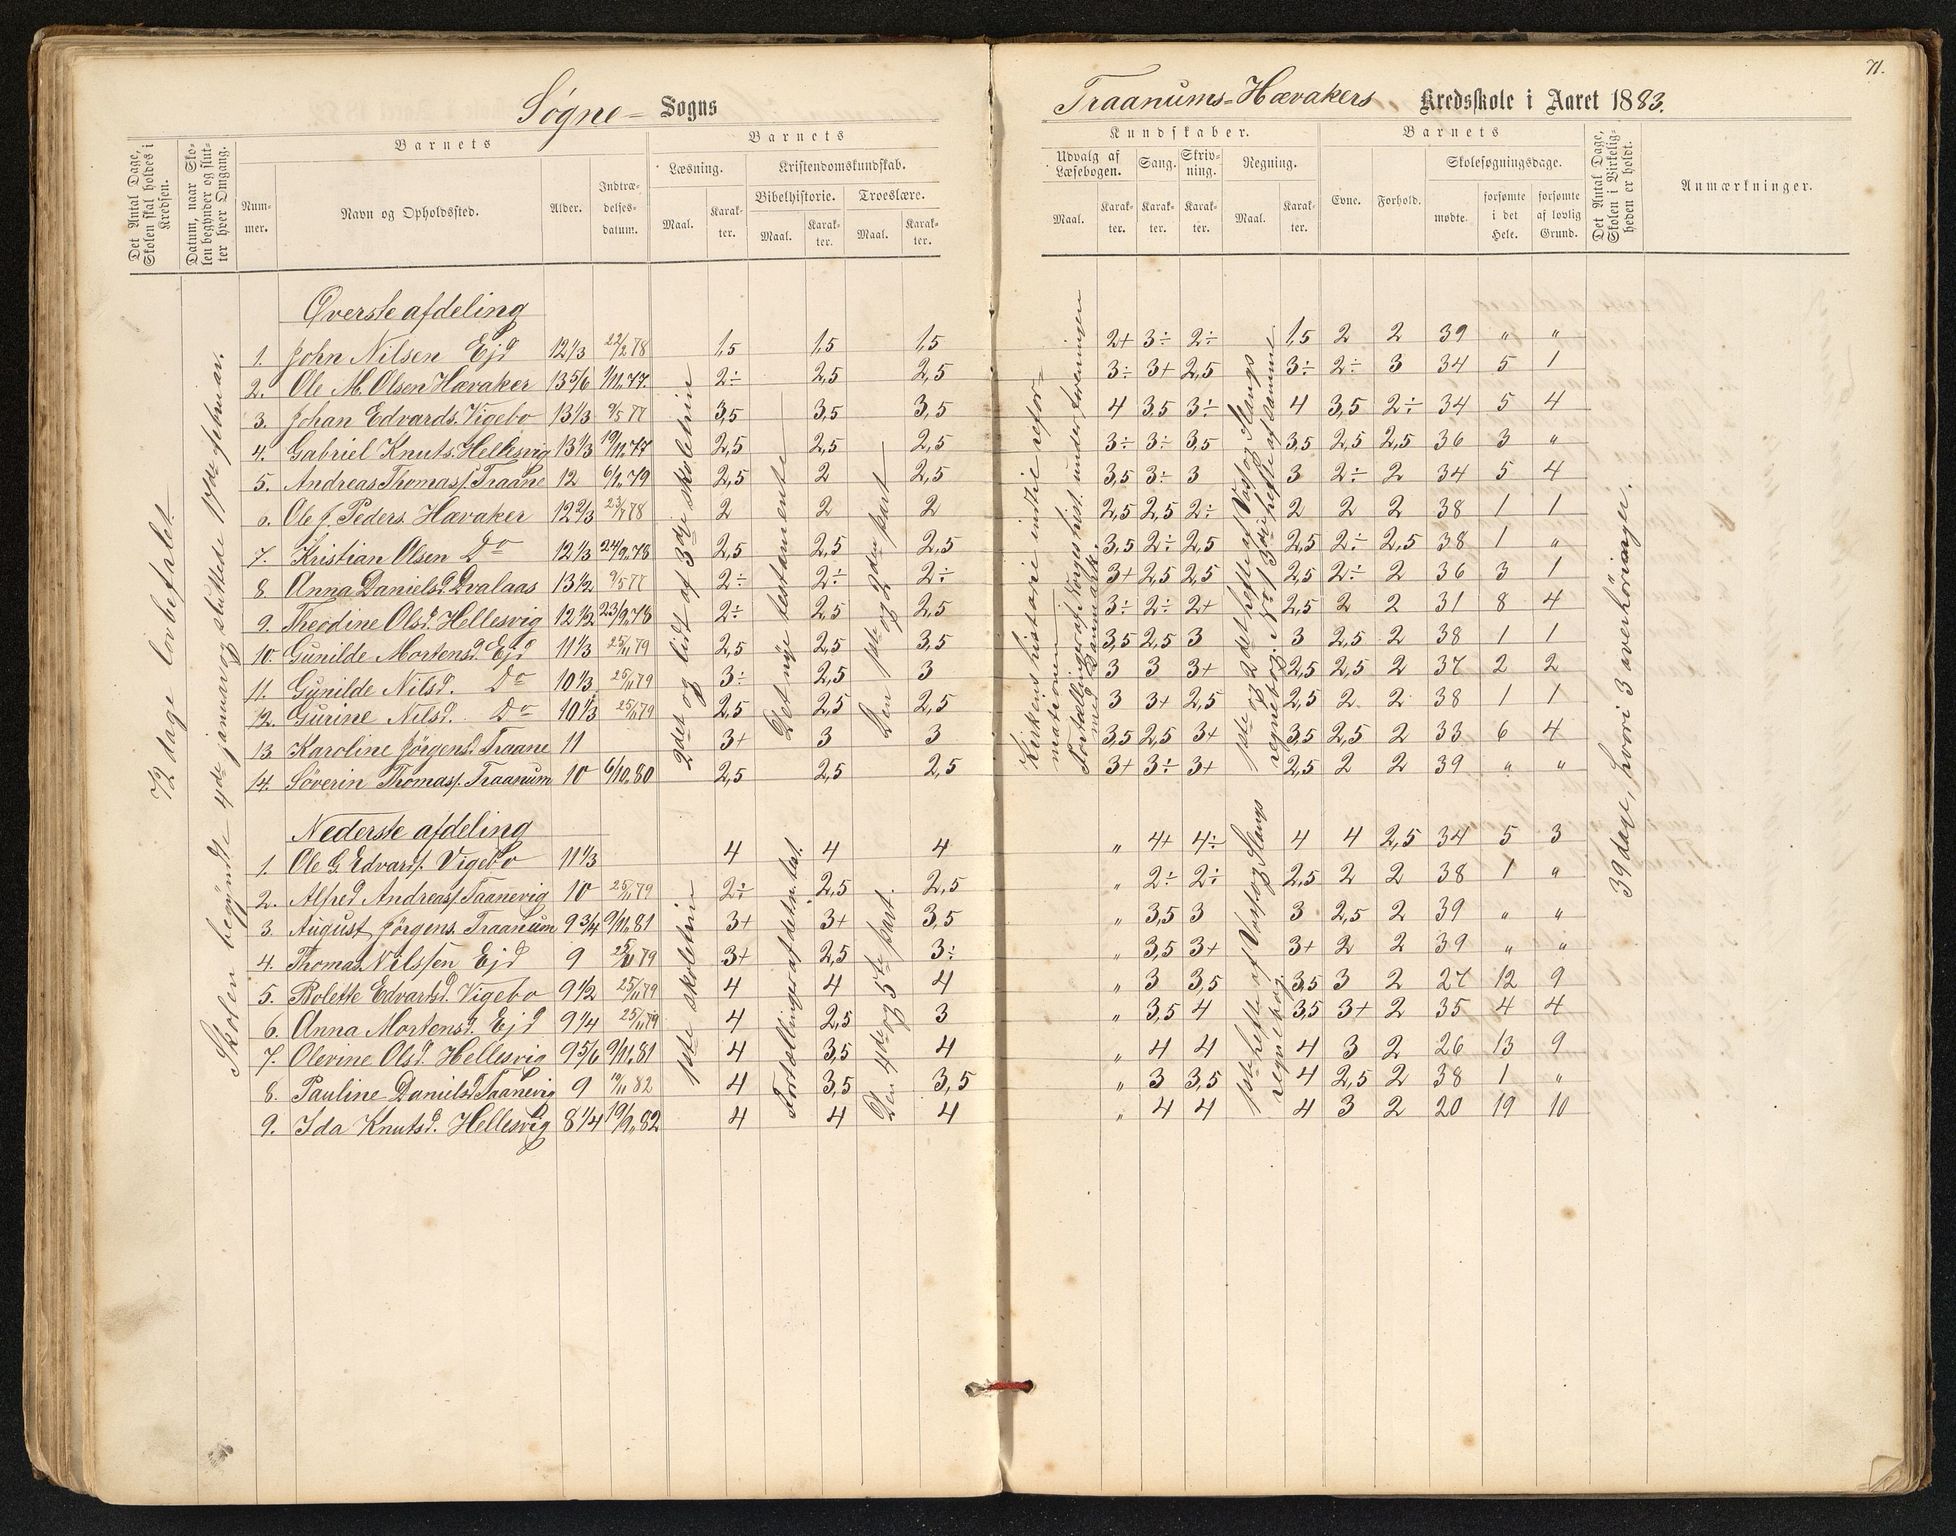 71.
Søgne- Sogns
Traanums-Hævakers Kredsskole i Aaret 1883.
Det Antal Dage, Skolen skal holdes i Kredsen.
Datum, naar Skolen begynder og slutter hver Omgang.
Barnets
Nummer.
Navn og Opholdssted.
Alder.
Indtrædelsesdatum.
Barnets
Læsning.
Kristendomskundskab.
Bibelhistorie. Troeslære.
Maal. Karakter. Maal. Karakter. Maal. Karakter.
Kundskaber.
Udvalg af Læsebogen. Sang. Skrivning. Regning.
Maal. Karakter. Karakter. Karakter. Maal. Karakter.
Barnets
Evne. Forhold.
Skolesøgningsdage.
mødte. forsømte i det Hele. forsømte af lovlig Grund.
Det Antal Dage, Skolen i Virkeligheden er holdt.
Anmærkninger.
72 dage lovbefalet.
Skolen begyndte 4de januar og sluttede 17de februar.
Øverste afdeling
1. John Nilsen Ejd 12 1/3 22/2 78 1,5 1,5 1,5 2+ 3÷ 2÷ 1,5 2 2 39 " "
2. Ole M. Olsen Hævaker 13 5/6 1/11 77. 2÷ 2,5 2,5 3÷ 3+ 2,5 3÷ 2÷ 3 34 5 1
3. Johan Edvards. Vigebo 13 1/3 9/5 77 3,5 3,5 3,5 4 3,5 3÷ 4 3,5 2÷ 34 5 4
4. Gabriel Knuts. Hellesvig 13 1/3 19/11 77 2,5 2,5 2,5 3÷ 3÷ 3,5 3,5 2,5 2,5 36 3 "
5. Andreas Thomass. Traane 12 6/1 79 2,5 2 2,5 3,5 3÷ 3 3 2÷ 2 34 5 4
6. Ole J. Peders. Hævaker 12 2/3 23/7 78 2 2 2 2,5 2,5 2÷ 2 2 2 38 1 1
7. Kristian Olsen Do 12 1/3 24/9 78 2,5 2,5 2,5 3,5 2÷ 2,5 2,5 2÷ 2,5 38 1 "
8. Anna Danielsd. Dvalaas 13 1/2 9/5 77 2÷ 2÷ 2÷ 3+ 2,5 2,5 2,5 2÷ 2 36 3 1
9. Theodine Olsd. Hellesvig 12 1/2 23/9 78 2÷ 2,5 2,5 3÷ 2÷ 2+ 2,5 2 2 31 8 4
10. Gunilde Mortensd. Ejd 11 1/3 25/11 79 2,5 2,5 3,5 3,5 2,5 3 3 2,5 2 38 1 1
11. Gunilde Nilsd. Do 10 1/3 25/11 79 3÷ 2,5 3 3 3 3+ 2,5 2,5 2 37 2 2
12. Gurine Nilsd. Do 10 1/3 25/11 79 2,5 2,5 2,5 3 3+ 2,5 2,5 2 2 38 1 1
13 Karoline Jörgensd. Traane 11 3+ 3 3 3,5 2,5 3+ 3,5 2,5 2 33 6 4
14. Söverin Thomass. Traanum 10 6/10 80 2,5 2,5 2,5 3+ 3÷ 3+ 2,5 2 2 39 " "
2det og lidt af 3die skoletrin
Det nye testamente
Den 1ste og 2den part
Kirkens historie indtil reformationen
Fortællinger af Norges hist. under foreningen med Danmark.
1ste og 2det hefte af Vas og Slangs regnebog. No 1 3die hefte af samme
39 dage, hvori 3 overhöringer.
Nederste afdeling
1. Ole G. Edvards. Vigebo 11 1/3 4 4 4 " 4+ 4÷ 4 4 2,5 34 5 3
2. Alfred Andreass. Taanevig 10 25/11 79 2÷ 2,5 2,5 " 2÷ 2÷ 2,5 2 2 38 1 "
3 August Jörgens. Traanum 9 3/4 9/11 81 3+ 3+ 3,5 " 3,5 3 3 2,5 2 39 " "
4. Thomas Nilssen Ejd 9 25/11 79 3+ 2,5 3÷ " 3,5 3+ 3+ 2 2 39 " "
5. Bolette Edvartsd. Vigebo 9 1/2 25/11 79 4 4 4 " 3 3,5 3,5 3 2 27 12 9
6. Anna Mortensd. Ejd 9 1/4 25/11 79 4 2,5 3 " 3,5 4 3,5 3+ 2 35 4 4
7. Olevine Olsd. Hellesvig 9 5/6 9/11 81 4 3,5 4 " 4 4 4 3 2 26 13 9
8. Pauline Danielsd. Taanevig 9 19/11 82 4 3,5 3,5 " 3 3,5 4 2,5 2 38 1 "
9. Ida Knutsd. Hellesvig 8 1/4 19/9 82 4 4 4 " 4 4 4 3 2 20 19 10
1ste skoletrin
Fortællinger af det n. test.
Den 4de og 5te part.
1ste hefte af Vas og Slangs regnebog.